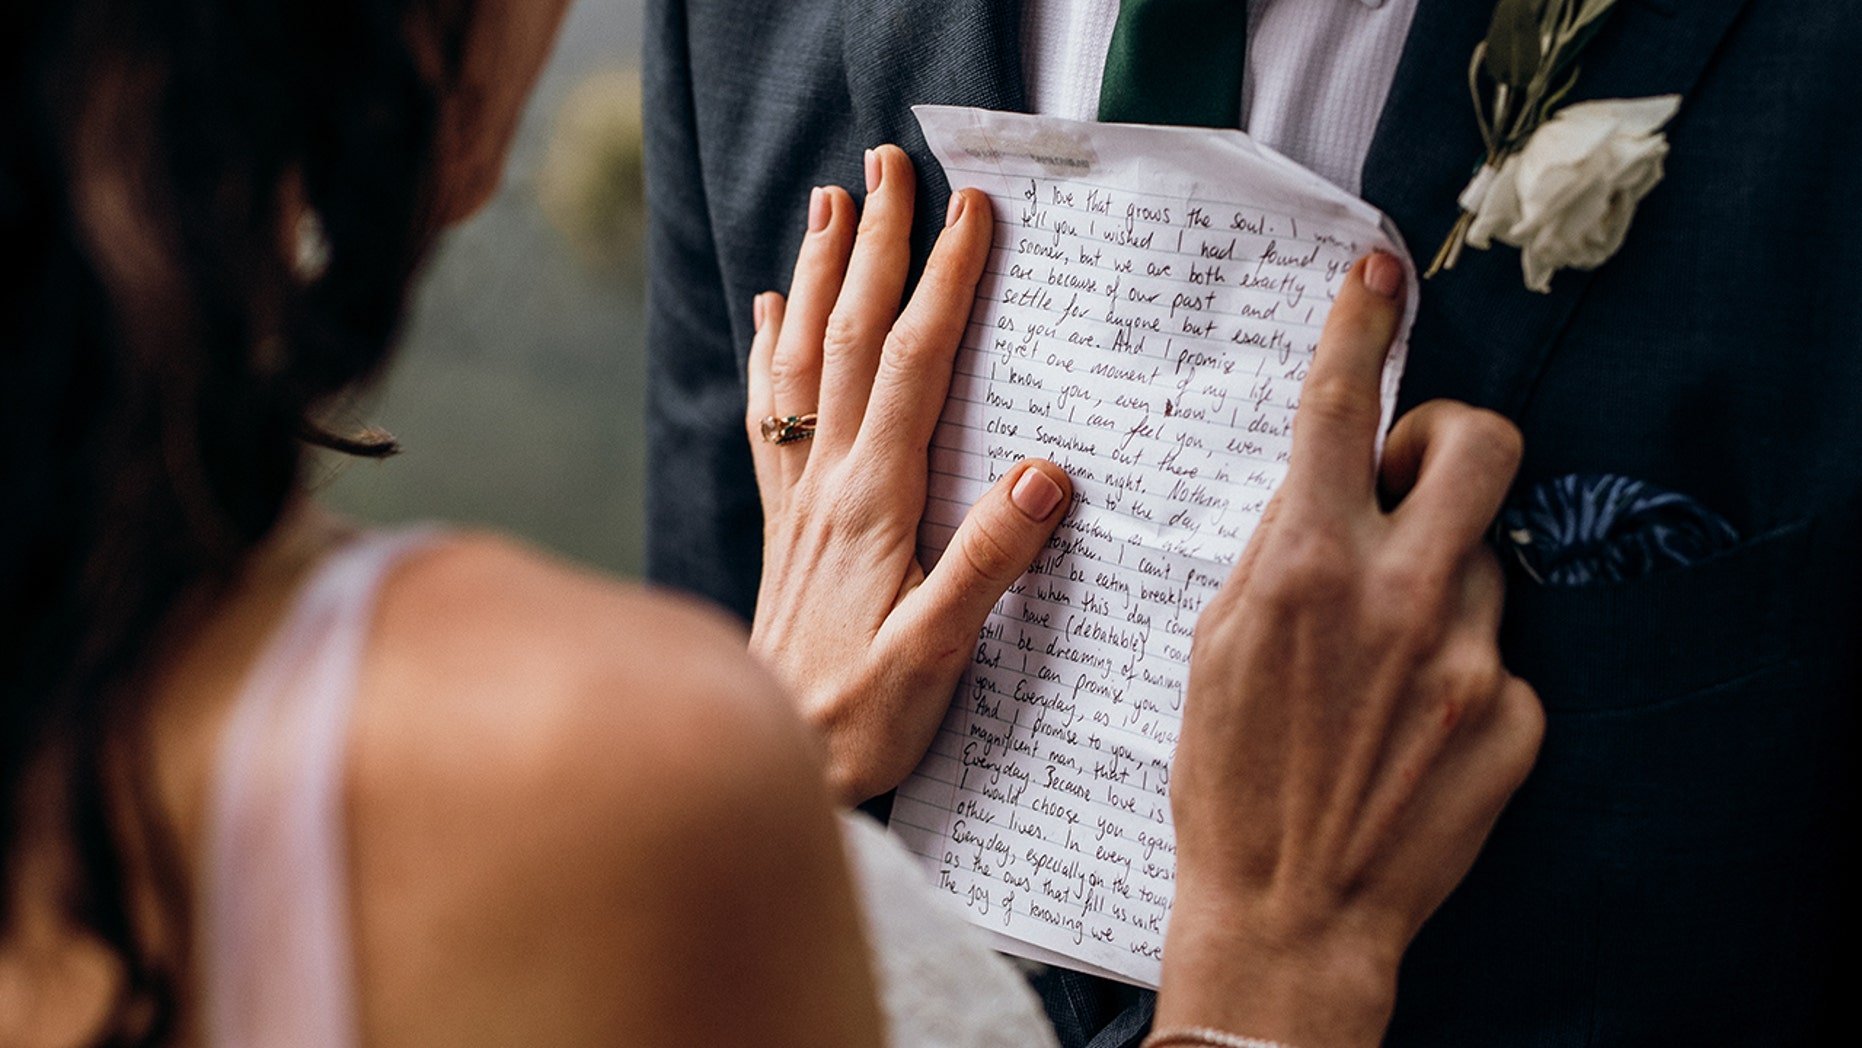 of love that grows the soul. I
tell you I wished I had found
sooner, but we are both exactly
are because of our past and I
settle for anyone but exactly
as you are. And I promise I
regret one moment of my life
I know you, even know. I don't
how but I can feel you, even
close somewhere out there in this
warm Autumn night. Nothing
to the day we
as what we
together. I can't
still be eating breakfast
when this day
have (debatable)
still be dreaming of owning
But I can promise you
you. Everyday, as I
And I promise to you, my
magnificent man, that I
Everyday. Because love is
I would choose you again
other lives. In every
Everyday, especially on the
as the ones that fill us with
The joy of knowing we were